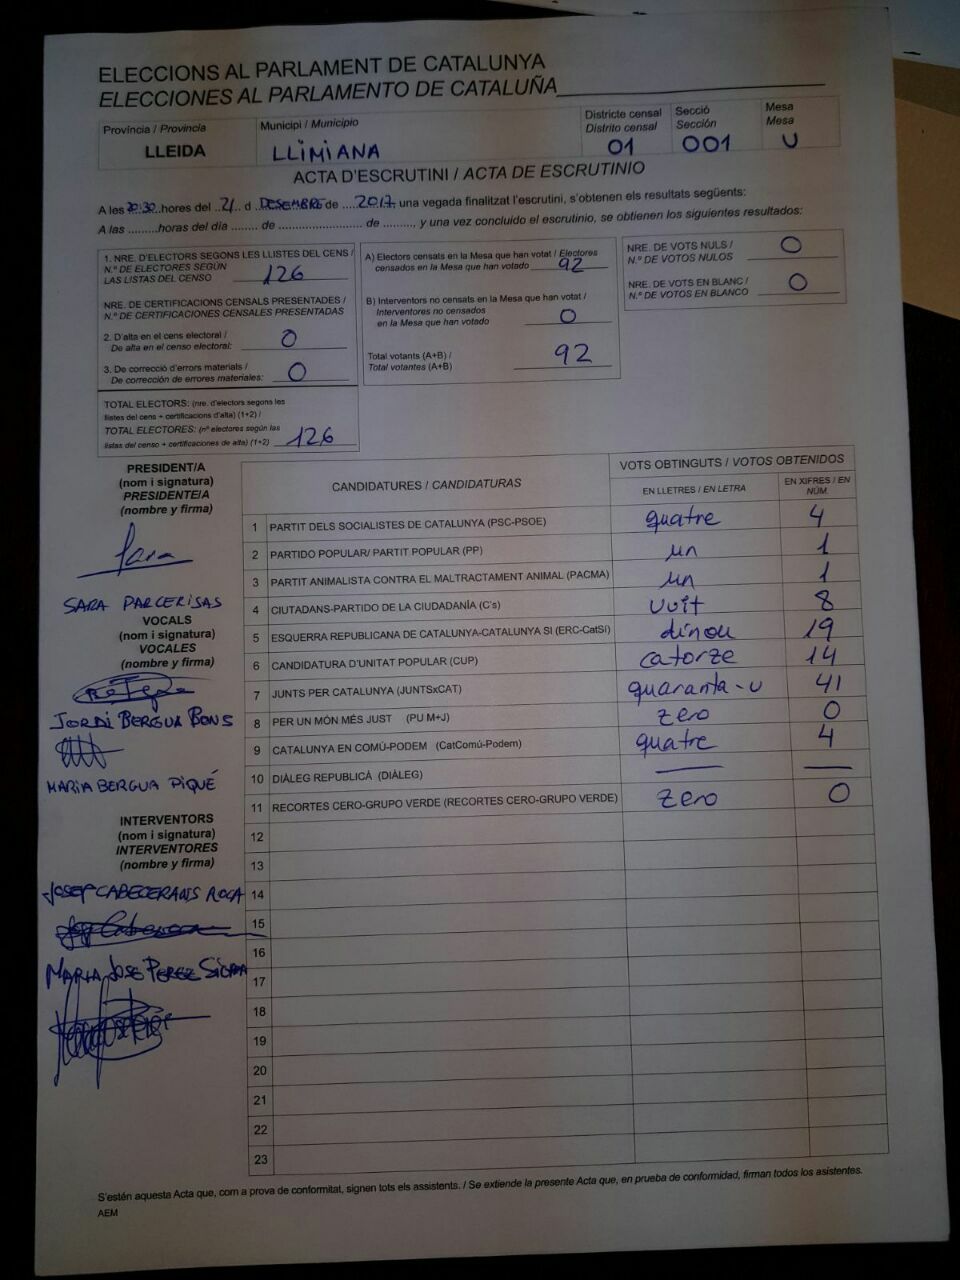 ELECCIONS AL PARLAMENT DE CATALUNYA
ELECCIONES AL PARLAMENTO DE CATALUÑA
Província / Provincia
LLEIDA
Municipi / Municipio
LLIMIANA
Districte censal
Distrito censal
01
Secció
Sección
001
Mesa
Mesa
U
ACTA D'ESCRUTINI / ACTA DE ESCRUTINIO
A les 20:30 hores del ..21.. d DESEMBRE de .....2017, una vegada finalitzat l'escrutini, s'obtenen els resultats següents:
A las .........horas del día ....... de ........................ de ........, y una vez concluido el escrutinio, se obtienen los siguientes resultados:
1. NRE. D'ELECTORS SEGONS LES LLISTES DEL CENS /
N.º DE ELECTORES SEGÚN
LAS LISTAS DEL CENSO 126
NRE. DE CERTIFICACIONS CENSALS PRESENTADES /
N.º DE CERTIFICACIONES CENSALES PRESENTADAS
2. D'alta en el cens electoral /
De alta en el censo electoral: 0
3. De correcció d'errors materials /
De corrección de errores materiales: 0
TOTAL ELECTORS: (nre. d'electors segons les
llistes del cens + certificacions d'alta) (1+2) /
TOTAL ELECTORES: (nº electores según las
listas del censo + certificaciones de alta) (1+2) 126
A) Electors censats en la Mesa que han votat / Electores
censados en la Mesa que han votado 92
B) Interventors no censats en la Mesa que han votat /
Interventores no censados
en la Mesa que han votado 0
Total votants (A+B) /
Total votantes (A+B) 92
NRE. DE VOTS NULS /
N.º DE VOTOS NULOS 0
NRE. DE VOTS EN BLANC /
N.º DE VOTOS EN BLANCO 0
PRESIDENT/A
(nom i signatura)
PRESIDENTE/A
(nombre y firma)
Sara
SARA PARCERISAS
VOCALS
(nom i signatura)
VOCALES
(nombre y firma)
JORDI BERGUA BONS
MARIA BERGUA PIQUÉ
INTERVENTORS
(nom i signatura)
INTERVENTORES
(nombre y firma)
JOSEP CABECERANS ROCA
MARIA JOSE PEREZ
CANDIDATURES / CANDIDATURAS
VOTS OBTINGUTS / VOTOS OBTENIDOS
EN LLETRES / EN LETRA
EN XIFRES / EN NÚM.
1 PARTIT DELS SOCIALISTES DE CATALUNYA (PSC-PSOE) quatre 4
2 PARTIDO POPULAR/ PARTIT POPULAR (PP) un 1
3 PARTIT ANIMALISTA CONTRA EL MALTRACTAMENT ANIMAL (PACMA) un 1
4 CIUTADANS-PARTIDO DE LA CIUDADANÍA (C's) vuit 8
5 ESQUERRA REPUBLICANA DE CATALUNYA-CATALUNYA SI (ERC-CatSI) dinou 19
6 CANDIDATURA D'UNITAT POPULAR (CUP) catorze 14
7 JUNTS PER CATALUNYA (JUNTSxCAT) quaranta-u 41
8 PER UN MÓN MÉS JUST (PU M+J) zero 0
9 CATALUNYA EN COMÚ-PODEM (CatComú-Podem) quatre 4
10 DIÀLEG REPUBLICÀ (DIÀLEG)
11 RECORTES CERO-GRUPO VERDE (RECORTES CERO-GRUPO VERDE) zero 0
12
13
14
15
16
17
18
19
20
21
22
23
S'estén aquesta Acta que, com a prova de conformitat, signen tots els assistents. / Se extiende la presente Acta que, en prueba de conformidad, firman todos los asistentes.
AEM